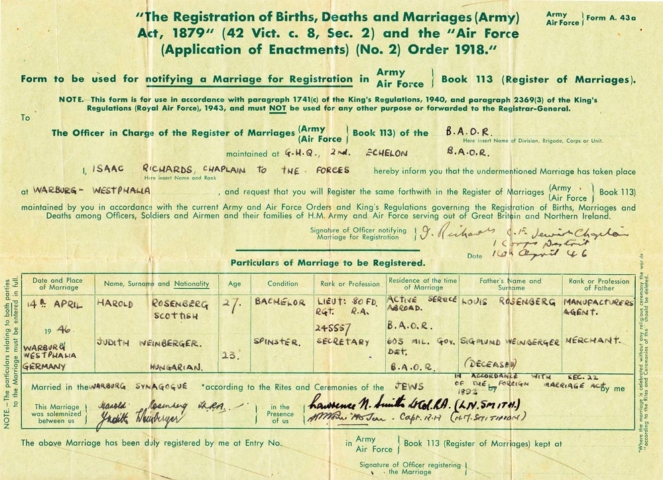 "The Registration of Births, Deaths and Marriages (Army)
Act, 1879" (42 Vict. c. 8, Sec. 2) and the "Air Force
(Application of Enactments) (No. 2) Order 1918."
Army
Air Force } Form A. 43a
Form to be used for notifying a Marriage for Registration in Army
Air Force } Book 113 (Register of Marriages).
NOTE. This form is for use in accordance with paragraph 1741(c) of the King's Regulations, 1940, and paragraph 2369(3) of the King's
Regulations (Royal Air Force), 1943, and must NOT be used for any other purpose or forwarded to the Registrar-General.
To
The Officer in Charge of the Register of Marriages (Army
(Air Force } Book 113) of the B.A.O.R.
Here insert Name of Division, Brigade, Corps or Unit.
maintained at G.H.Q. 2nd ECHELON B.A.O.R.
I, ISAAC RICHARDS, CHAPLAIN TO THE FORCES hereby inform you that the undermentioned Marriage has taken place
Here insert Name and Rank
at WARBURG - WESTPHALIA, and request that you will Register the same forthwith in the Register of Marriages (Army
(Air Force } Book 113)
maintained by you in accordance with the current Army and Air Force Orders and King's Regulations governing the Registration of Births, Marriages and
Deaths among Officers, Soldiers and Airmen and their families of H.M. Army and Air Force serving out of Great Britain and Northern Ireland.
Signature of Officer notifying
Marriage for Registration } I. Richards C.F. Jewish Chaplain
1 Corps District
Date 14th April 46
Particulars of Marriage to be Registered.
NOTE.—The particulars relating to both parties
to the Marriage must be entered in full.
Date and Place
of Marriage
Name, Surname and Nationality
Age
Condition
Rank or Profession
Residence at the time
of Marriage
Father's Name and
Surname
Rank or Profession of
Father
14th APRIL
1946
WARBURG
WESTPHALIA
GERMANY
HAROLD ROSENBERG
SCOTTISH
27.
BACHELOR
LIEUT: 80 FD.
RGT. R.A.
245557
ACTIVE SERVICE
ABROAD.
B.A.O.R.
LOUIS ROSENBERG
MANUFACTURERS
AGENT.
JUDITH WEINBERGER.
HUNGARIAN.
23.
SPINSTER.
SECRETARY
605 MIL. GOV.
DET.
B.A.O.R.
SIGMUND WEINBERGER
(DECEASED)
MERCHANT.
Married in the WARBURG SYNAGOGUE *according to the Rites and Ceremonies of the JEWS
IN ACCORDANCE WITH SEC. 22
OF THE FOREIGN MARRIAGE ACT,
1892 by me
This Marriage
was solemnized
between us
Harold Rosenberg
Judith Weinberger
in the
Presence of
us
Lawrence N. Smith Lt Col. R.A. (L.N. SMITH)
Capt. R.A
The above Marriage has been duly registered by me at Entry No. in Army
Air Force } Book 113 (Register of Marriages) kept at
Signature of Officer registering
the Marriage